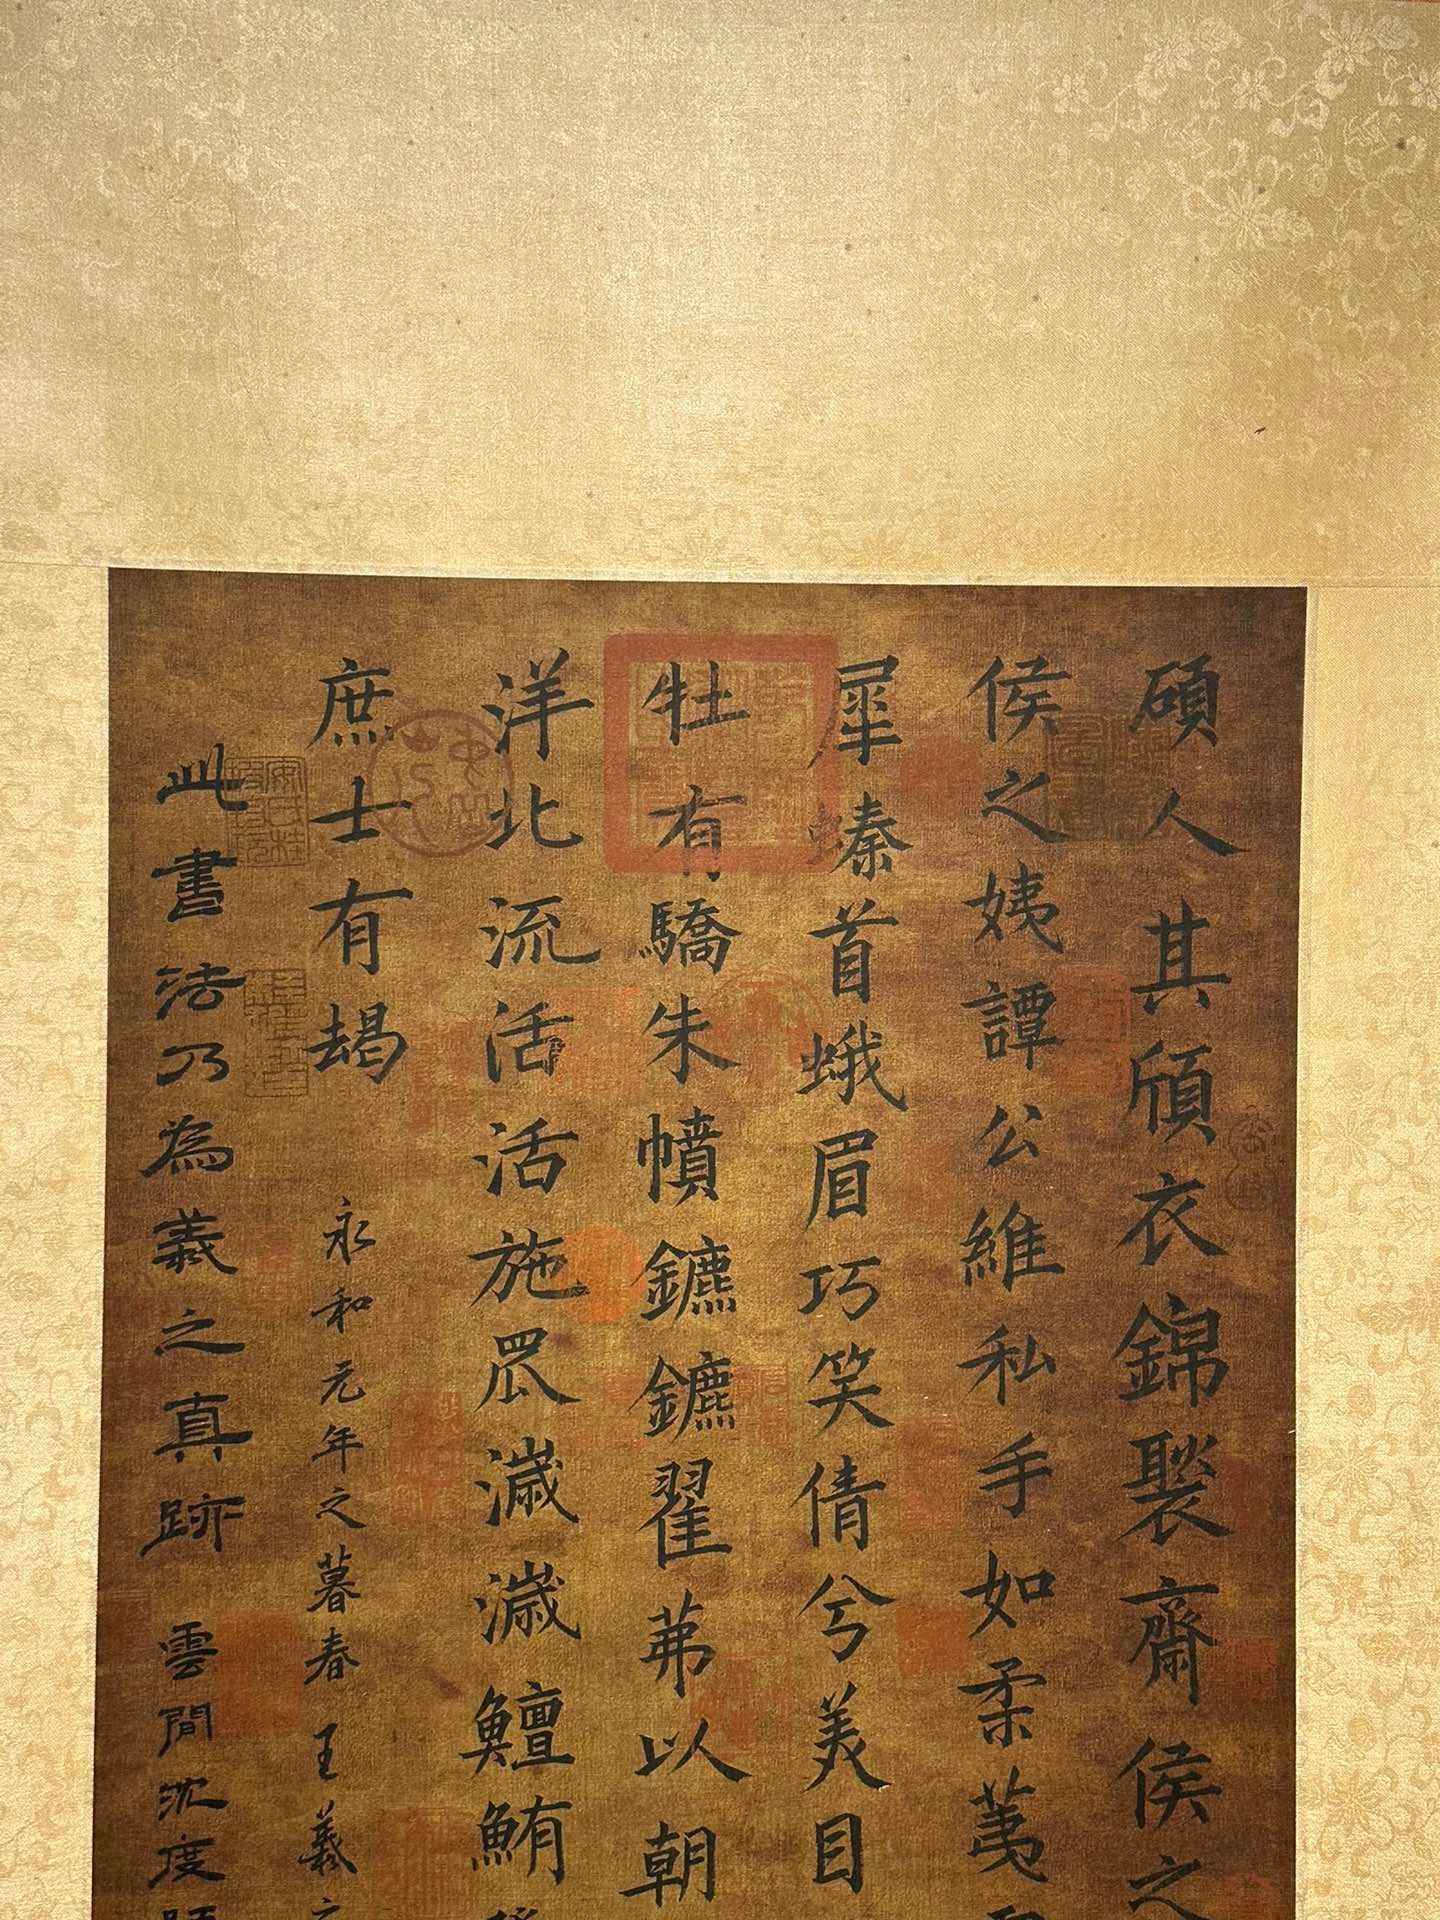 碩人其頎衣錦褧齋侯之
侯之姨譚公維私手如柔荑
犀螓首蛾眉巧笑倩兮美目
牡有驕朱幩鑣鑣翟茀以朝
洋北流活活施罛濊濊鱣鮪
庶士有朅
永和元年之暮春王羲之
此書法乃為羲之真跡 雲間沈度